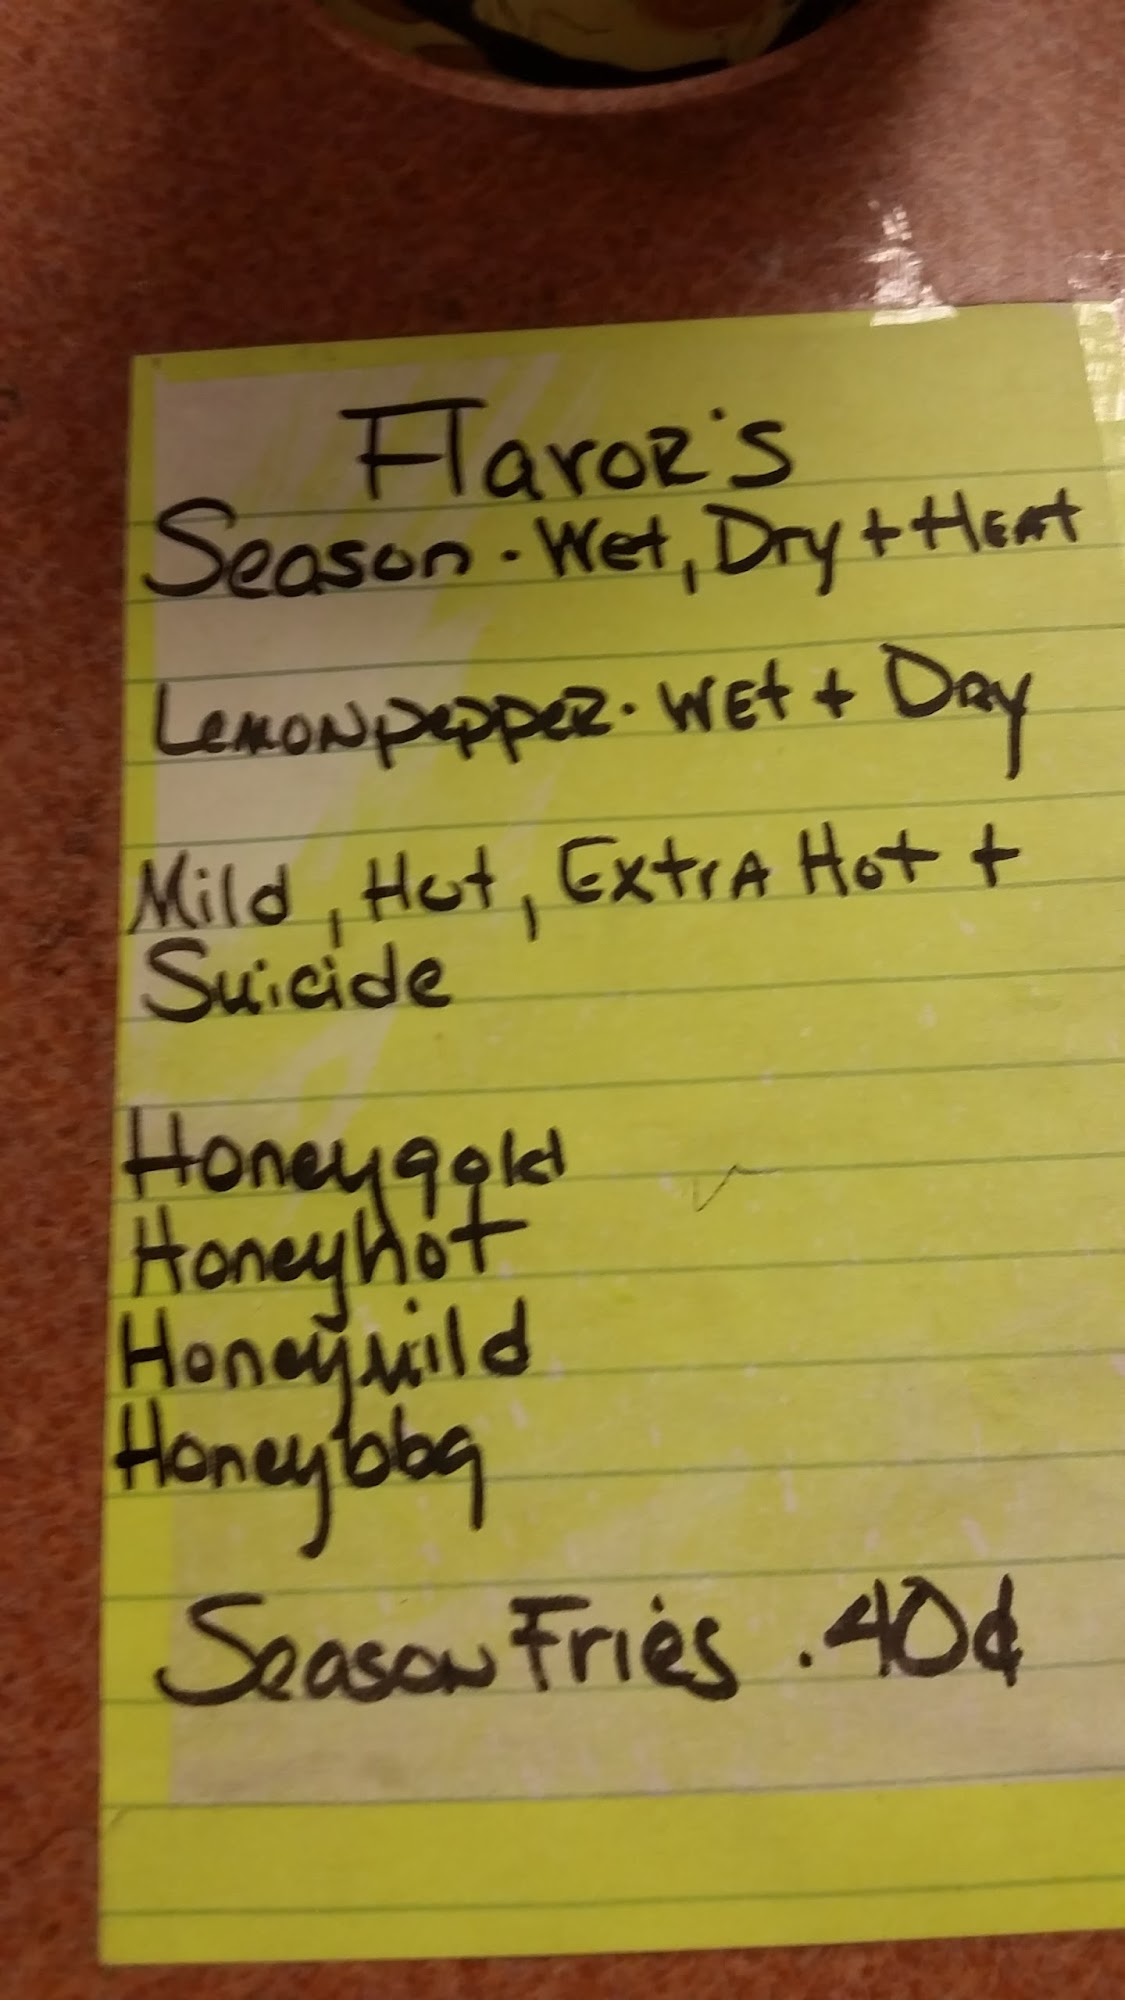 Flavor's
Season · Wet, Dry + Heat
Lemonpepper · Wet + Dry
Mild, Hot, Extra Hot +
Suicide
Honeygold
Honeyhot
Honeymild
Honeybbq
Season Fries .40¢